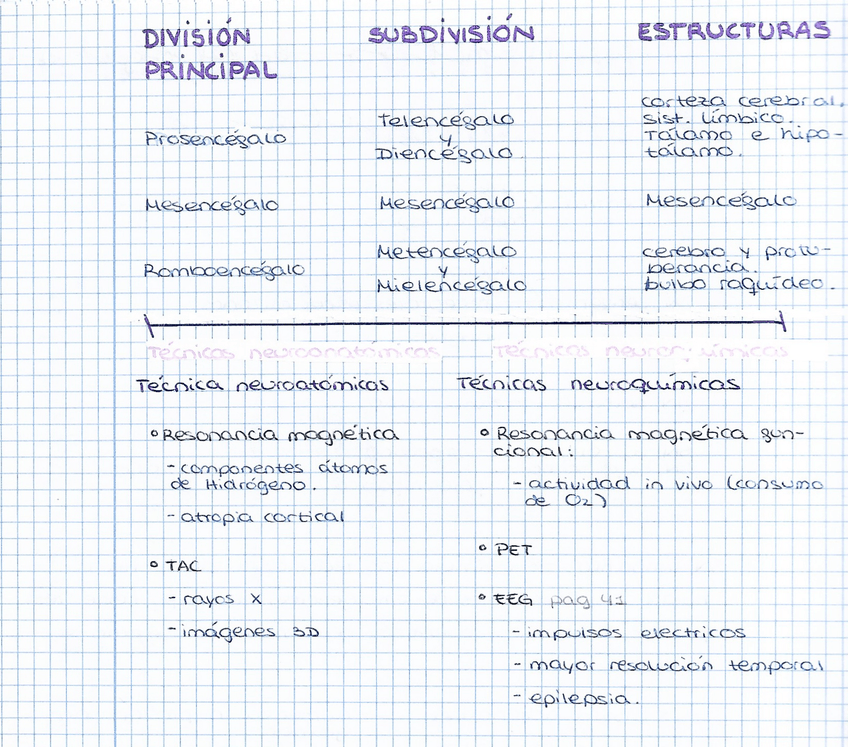 DIVISIÓN PRINCIPAL SUBDIVISIÓN ESTRUCTURAS
Prosencéfalo
Telencéfalo
y
Diencéfalo
corteza cerebral.
sist. límbico.
Tálamo e hipo-
tálamo.
Mesencéfalo Mesencéfalo Mesencéfalo
Romboencéfalo
Metencéfalo
y
Mielencéfalo
cerebro y protu-
berancia.
bulbo raquídeo.
Técnicas neuroanatómicas Técnicas neuroquímicas
Técnica neuroatómicas
°Resonancia magnética
-componentes átomos
de Hidrógeno.
-atropia cortical
° TAC
-rayos X
-imágenes 3D
Técnicas neuroquímicas
° Resonancia magnética fun-
cional:
-actividad in vivo (consumo
de O2)
° PET
° EEG pag 41
-impulsos electricos
-mayor resolución temporal
-epilepsia.